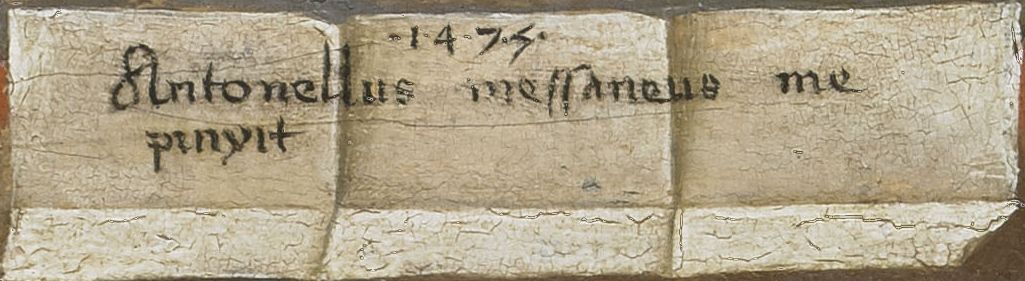 ·1·4·7·5·
Antonellus messaneus me
pinxit